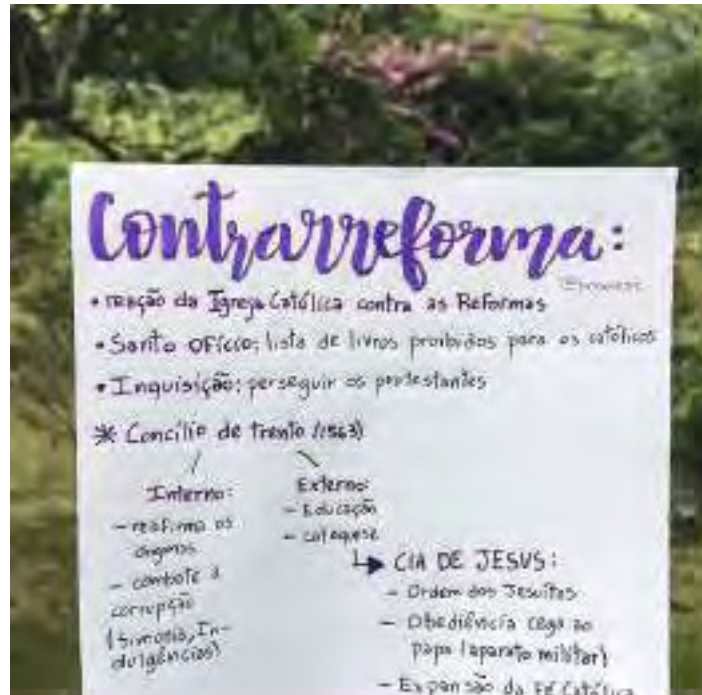 Contrarreforma:
• reação da Igreja Católica contra as Reformas
• Santo Ofício: lista de livros proibidos para os católicos
• Inquisição: perseguir os protestantes
* Concílio de trento (1563)
Interno:
- reafirma os
dogmas
- combate a
corrupção
(simonia, In-
dulgências)
Externo:
- Educação
- catequese
CIA DE JESUS:
- Ordem dos Jesuítas
- Obediência cega ao
papa (aparato militar)
- Expansão da Fé Católica